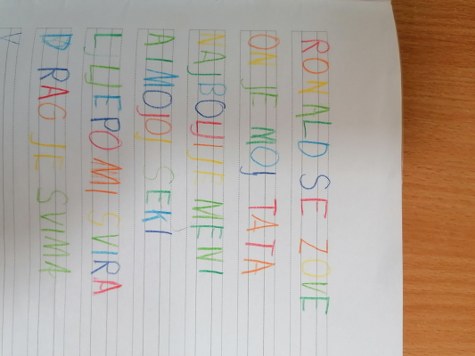 RONALD SE ZOVE
ON JE MOJ TATA
NAJBOLJI JE MENI
A I MOJOJ SEKI
LIJEPO MI SVIRA
DRAG JE SVIMA